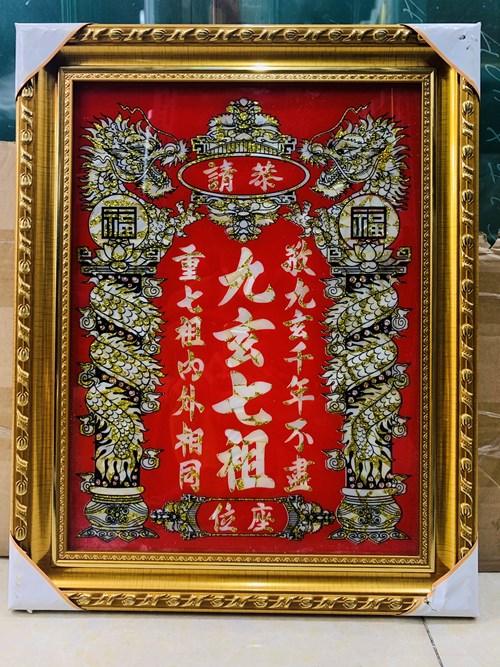 恭請
福
福
敬九玄千年不盡
九玄七祖
重七祖內外相同
座位